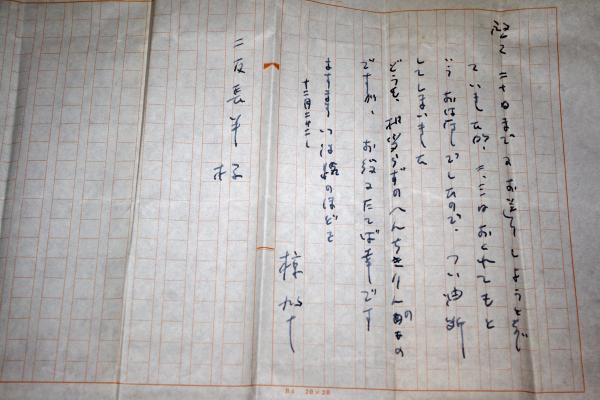 二十日までにお送りしようと
ていましたが、二、三日おくれてもと
いうお話でしたので、つい油断
してしまいました
どうも、相変らずのへんちきりんのもの
ですが、お役にたてば幸です
ますます御活躍のほどを
十二月二十二日
椋鳩十
二反長半様
B4 20×20